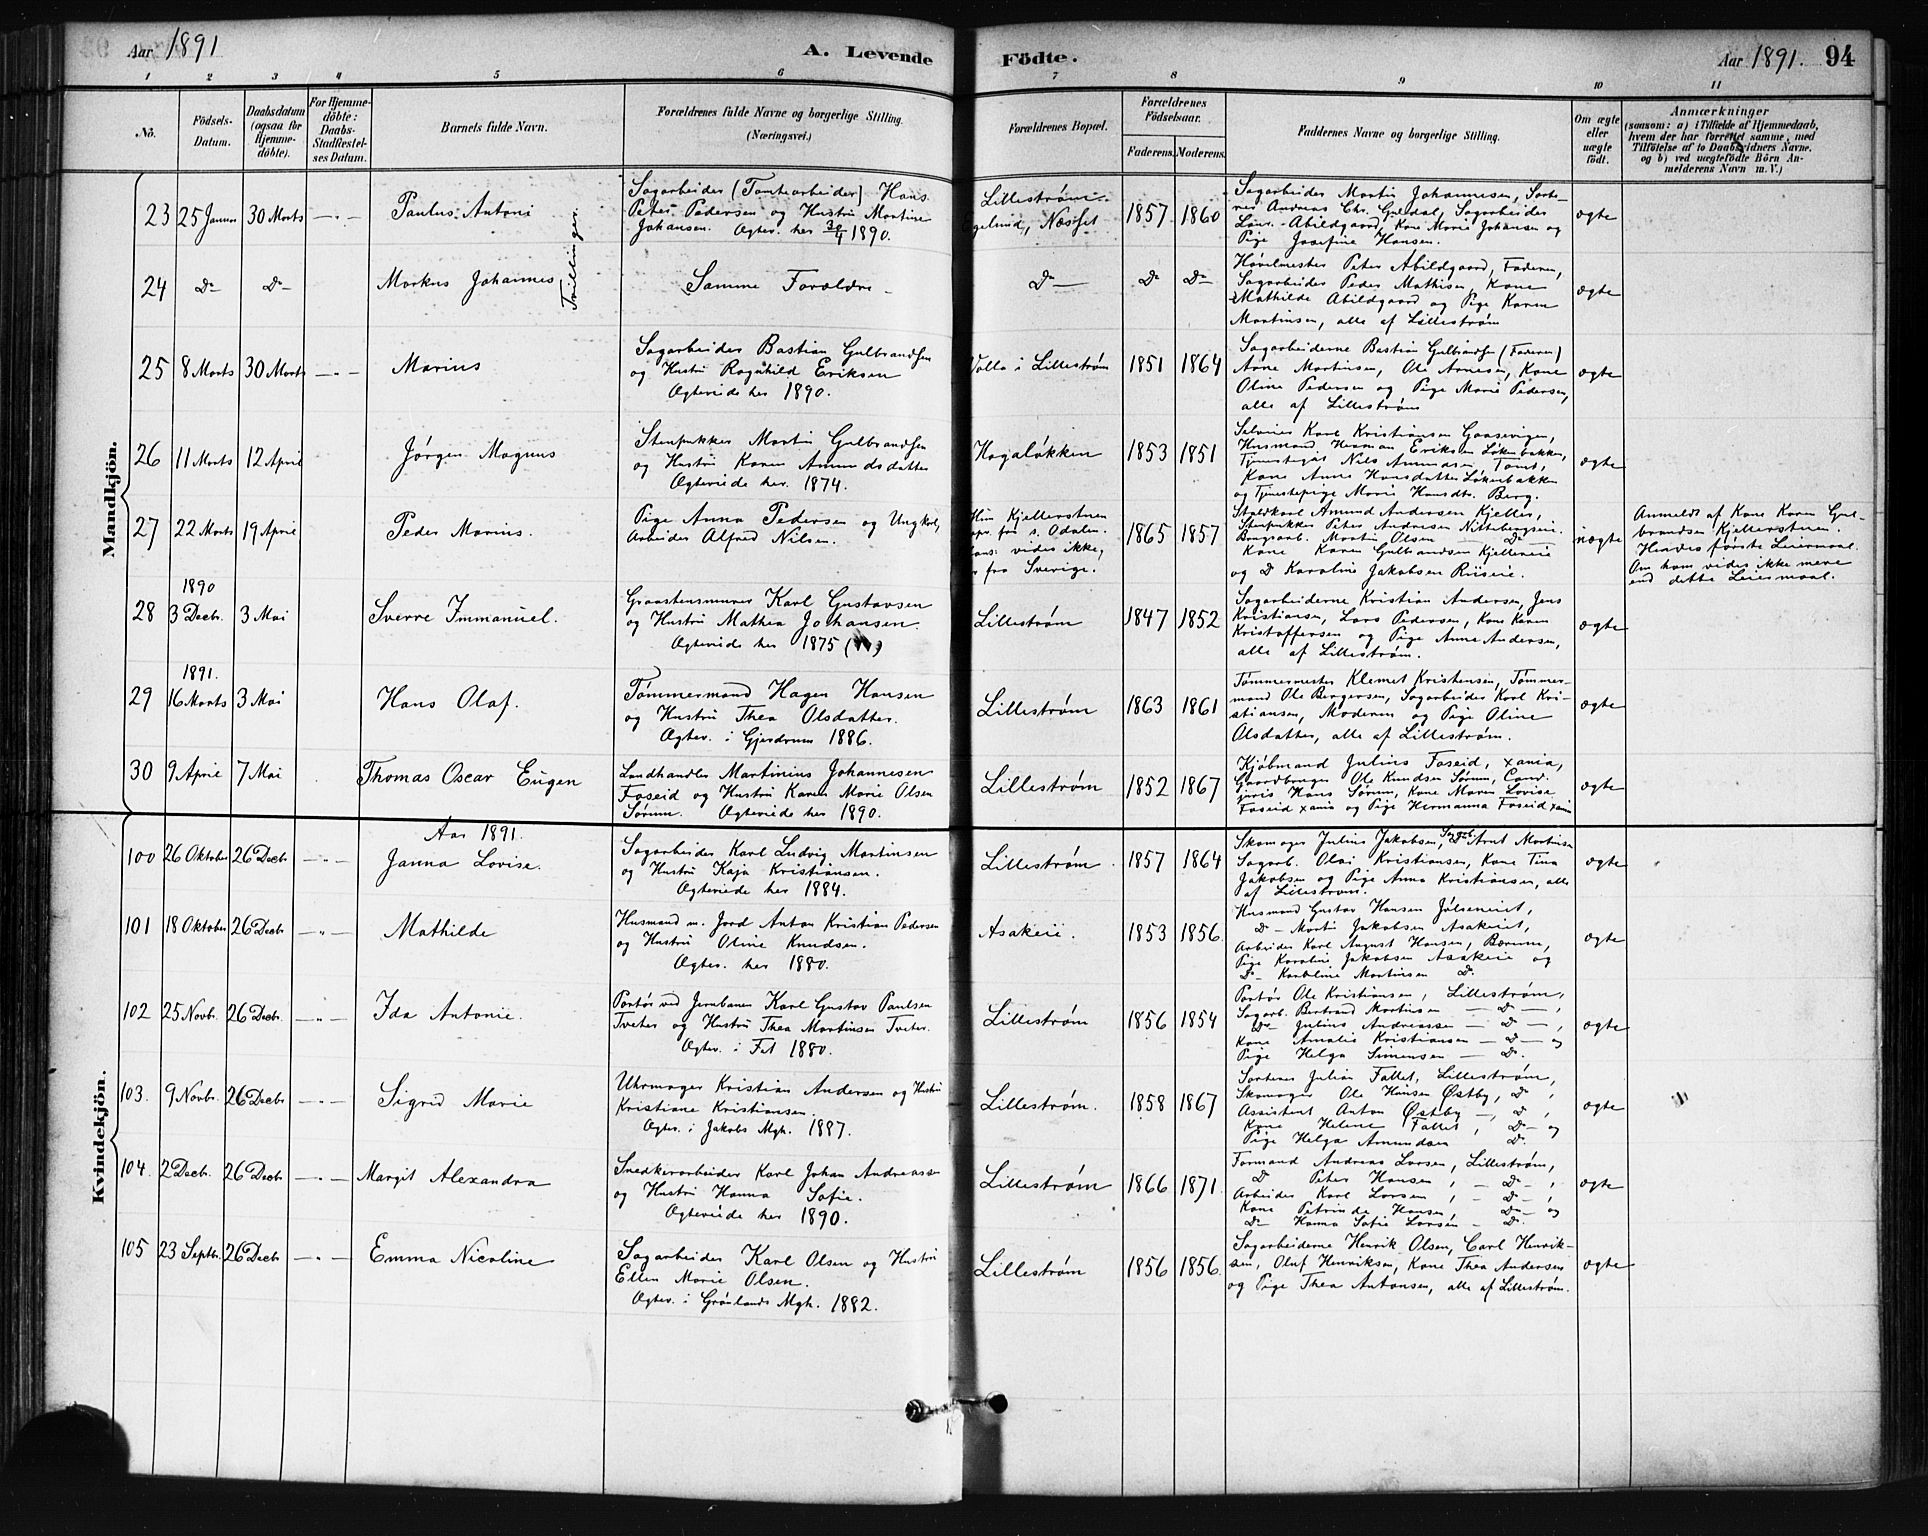 Aar 1891
A. Levende
Födte.
Aar 1891.
94
1
2
3
4
5
6
7
8
9
10
11
No.
Födsels-
Datum.
Daabsdatum
(ogsaa for
Hjemme-
döbte).
For Hjemme-
döbte:
Daabs-
Stadfæstel-
ses Datum.
Barnets fulde Navn.
Forældrenes fulde Navne og borgerlige Stilling.
(Næringsvei.)
Forældrenes Bopæl.
Forældrenes
Födselsaar.
Faderens.
Moderens.
Faddernes Navne og borgerlige Stilling.
Om ægte
eller
uægte
födt.
Anmærkninger
(saasom: a) i Tilfælde af Hjemmedaab,
hvem der har forrettet samme, med
Tilföielse af to Daabsvidners Navne.
og b) ved uægtefödte Börn An-
melderens Navn m. V.)
Mandkjön.
23
25 Januar
30 Marts
Paulus Antoni
Tvillinger.
Sagarbeider (Tomtearbeider) Hans
Peter Pedersen og Hustru Martine
Johansen. Ægtev. her 30/4 1890.
Lillestrøm
Næsset
1857
1860
Sagarbeider Martin Johannesen, Sorte-
rer Andreas Chr. Guldal, Sagarbeider
Laur. Abildgaard, Kone Marie Johansen og
Pige Josefine Hansen.
ægte
24
Do
Do
Markus Johannes
Samme Forældre
Do
Do
Do
Høvelmester Peter Abildgaard, Faderen,
Sagarbeider Peder Mathisen, Kone
Mathilde Abildgaard og Pige Karen
Martinsen, alle af Lillestrøm
ægte
25
8 Marts
30 Marts
Marius
Sagarbeider Bastian Gulbrandsen
og Hustru Ragnhild Eriksen
Ægteviede her 1890.
Volla i Lillestrøm
1851
1864
Sagarbeiderne Bastian Gulbrandsen (Faderen)
Arne Martinsen, Ole Arnesen, Kone
Oline Pedersen og Pige Marie Pedersen,
alle af Lillestrøm
ægte
26
11 Marts
12 April
Jørgen Magnus
Stenpukker Martin Gulbrandsen
og Hustru Karen Amundsdatter
Ægteviede her 1874.
Hagaløkken
1853
1851
Selveier Karl Kristiansen Gaasevigen,
Husmand Herman Eriksen Løkenbakken,
Tjenestegut Nils Amundsen Tomt,
Kone Anne Hansdatter Løkenbakken
og Tjenestepige Marie Hansdtr. Berg.
ægte
27
22 Marts
19 April
Peder Marius.
Pige Anna Pedersen og Ungkarl,
Arbeider Alfred Nilsen.
Hun Kjellerstuen
fra s. Odalen.
vides ikke,
fra Sverige.
1865
1857
Staldkarl Amund Andersen Kjeller,
Stenpukker Peter Andersen Nittebergseie.
Brugsarb. Martin Olsen Do
Kone Karen Gulbrandsen Kjellereie
og Do Karoline Jakobsen Riiseie.
uægte
Anmeldt af Kone Karen Gul-
brandsen Kjellerstuen.
Hendes første Leiermaal.
Om ham vides ikke mere
end dette Leiermaal.
1890
28
3 Decbr.
3 Mai
Sverre Immanuel.
Graastensmurer Karl Gustavsen
og Hustru Mathea Johansen
Ægteviede her 1875
Lillestrøm
1847
1852
Sagarbeiderne Kristian Andersen, Jens
Kristiansen, Lars Pedersen, Kone Karen
Kristoffersen og Pige Anne Andersen,
alle af Lillestrøm.
ægte
1891.
29
16 Marts
3 Mai
Hans Olaf.
Tømmermand Hagen Hansen
og Hustru Thea Olsdatter.
Ægtev. i Gjerdrum 1886.
Lillestrøm
1863
1861
Tømmermester Klemet Kristensen, Tømmer-
mand Ole Bergersen, Sagarbeider Karl Kri-
stiansen, Moderen og Pige Oline
Olsdatter, alle af Lillestrøm.
ægte
30
9 April
7 Mai
Thomas Oscar Eugen
Landhandler Martinius Johannesen
Foseid og Hustru Karen Marie Olsen
Sørum. Ægteviede her 1890.
Lillestrøm
1852
1867
Kjøbmand Julius Foseid, Xania,
Gaardbruger Ole Knudsen Sørum, Cand.
juris Hans Sørum, Kone Maren Lovise
Foseid Xania og Pige Hermanna Foseid Xania
ægte
Kvindekjön.
Aar 1891.
100
26 Oktober
26 Decbr
Janna Lovise.
Sagarbeider Karl Ludvig Martinsen
og Hustru Kaja Kristiansen.
Ægteviede her 1884.
Lillestrøm
1857
1864
Skomager Julius Jakobsen, Sagarb. Arnt Martinsen
Sagarb. Olai Kristiansen, Kone Tina
Jakobsen og Pige Anna Kristiansen, alle
af Lillestrøm.
ægte
101
18 Oktober
26 Decbr
Mathilde
Husmand m. Jord Anton Kristian Pedersen
og Hustru Oline Knudsen.
Ægtev. her 1880.
Asakeie.
1853
1856
Husmand Gustav Hansen Jølseneiet,
Do Martin Jakobsen Asakeiet,
Arbeider Karl August Hansen, Bærum,
Pige Karoline Jakobsen Asakeie og
Do Karoline Martinsen Do.
ægte
102
25 Novbr.
26 Decbr.
Ida Antonie.
Portør ved Jernbanen Karl Gustav Paulsen
Tveter og Hustru Thea Martinsen Tveter.
Ægtev. i Fet 1880.
Lillestrøm
1856
1854
Portør Ole Kristiansen, Lillestrøm,
Sagarb. Bertrand Martinsen Do,
Do Julius Andreassen Do,
Kone Amalie Kristiansen Do og
Pige Helga Simensen Do.
ægte
103.
9 Novbr.
26 Decbr
Sigrid Marie
Uhrmager Kristian Andersen og Hustru
Kristiane Kristiansen.
Ægtev. i Jakobs Mgh. 1887.
Lillestrøm.
1858
1867
Sorterer Julian Fallet, Lillestrøm,
Skomager Ole Hansen Østby, Do,
Assistent Anton Østby, Do,
Kone Helene Fallet, Do og
Pige Helga Amundsen Do.
ægte
104.
2 Decbr.
26 Decbr.
Margit Alexandra
Snedkerarbeider Karl Johan Andreassen
og Hustru Hanna Sofie.
Ægteviede her 1890.
Lillestrøm
1866
1871
Formand Andreas Larsen, Lillestrøm,
Do Peter Hansen, Do,
Arbeider Karl Larsen, Do,
Kone Petrinde Hansen, Do og
Do Hanna Sofie Larsen Do.
ægte
105
23 Septbr.
26 Decbr
Emma Nicoline
Sagarbeider Karl Olsen og Hustru
Ellen Marie Olsen.
Ægtev. i Grønlands Mgh. 1882.
Lillestrøm
1856
1856
Sagarbeiderne Henrik Olsen, Carl Henrik-
sen, Oluf Henriksen, Kone Thea Andersen
og Pige Thea Antonsen, alle af Lillestrøm.
ægte